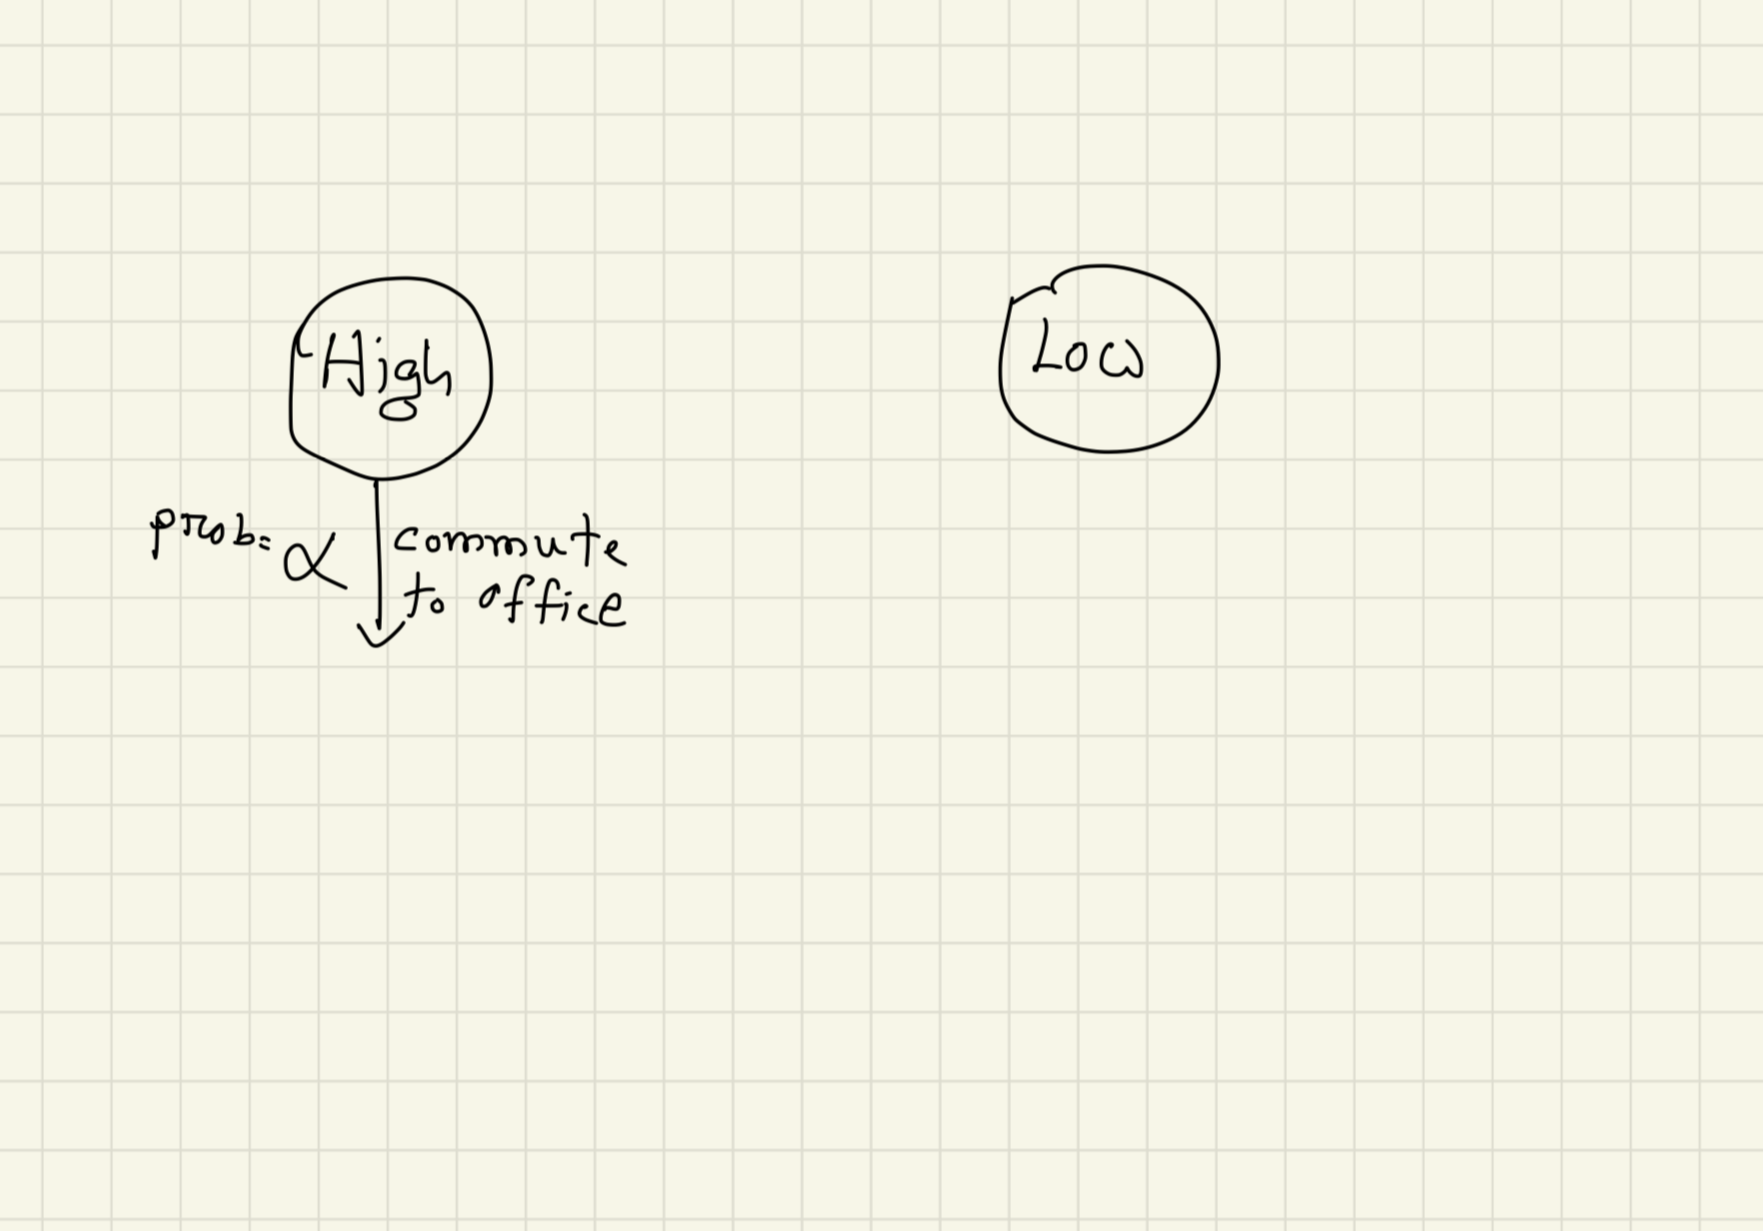 High
Low
prob= α
commute
to office